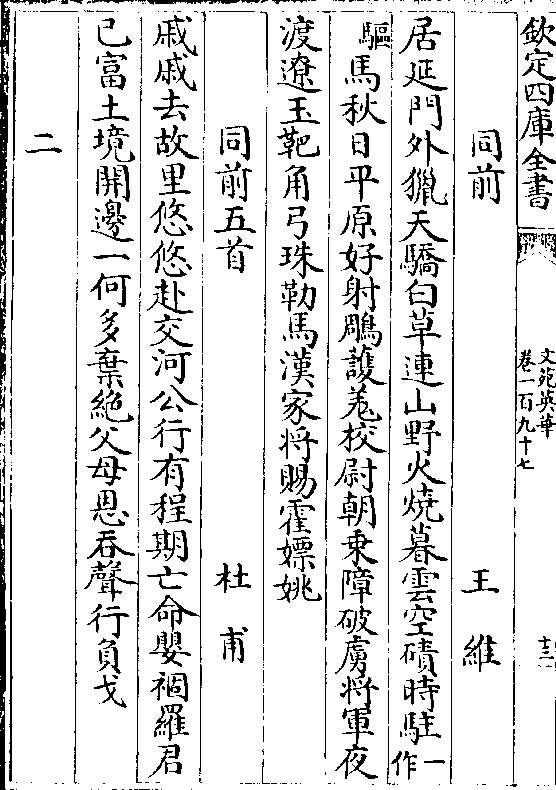 欽定四庫全書
文苑英華
卷一百九十七
十二
同前 王維
居延門外獵天驕白草連山野火燒暮雲空磧時駐一作
驅馬秋日平原好射鵰護羌校尉朝乗障破虜將軍夜
渡遼玉靶角弓珠勒馬漢家将賜霍嫖姚
同前五首 杜甫
戚戚去故里悠悠赴交河公行有程期亡命嬰禍羅君
已富土境開邊一何多棄絶父母恩吞聲行負戈
二